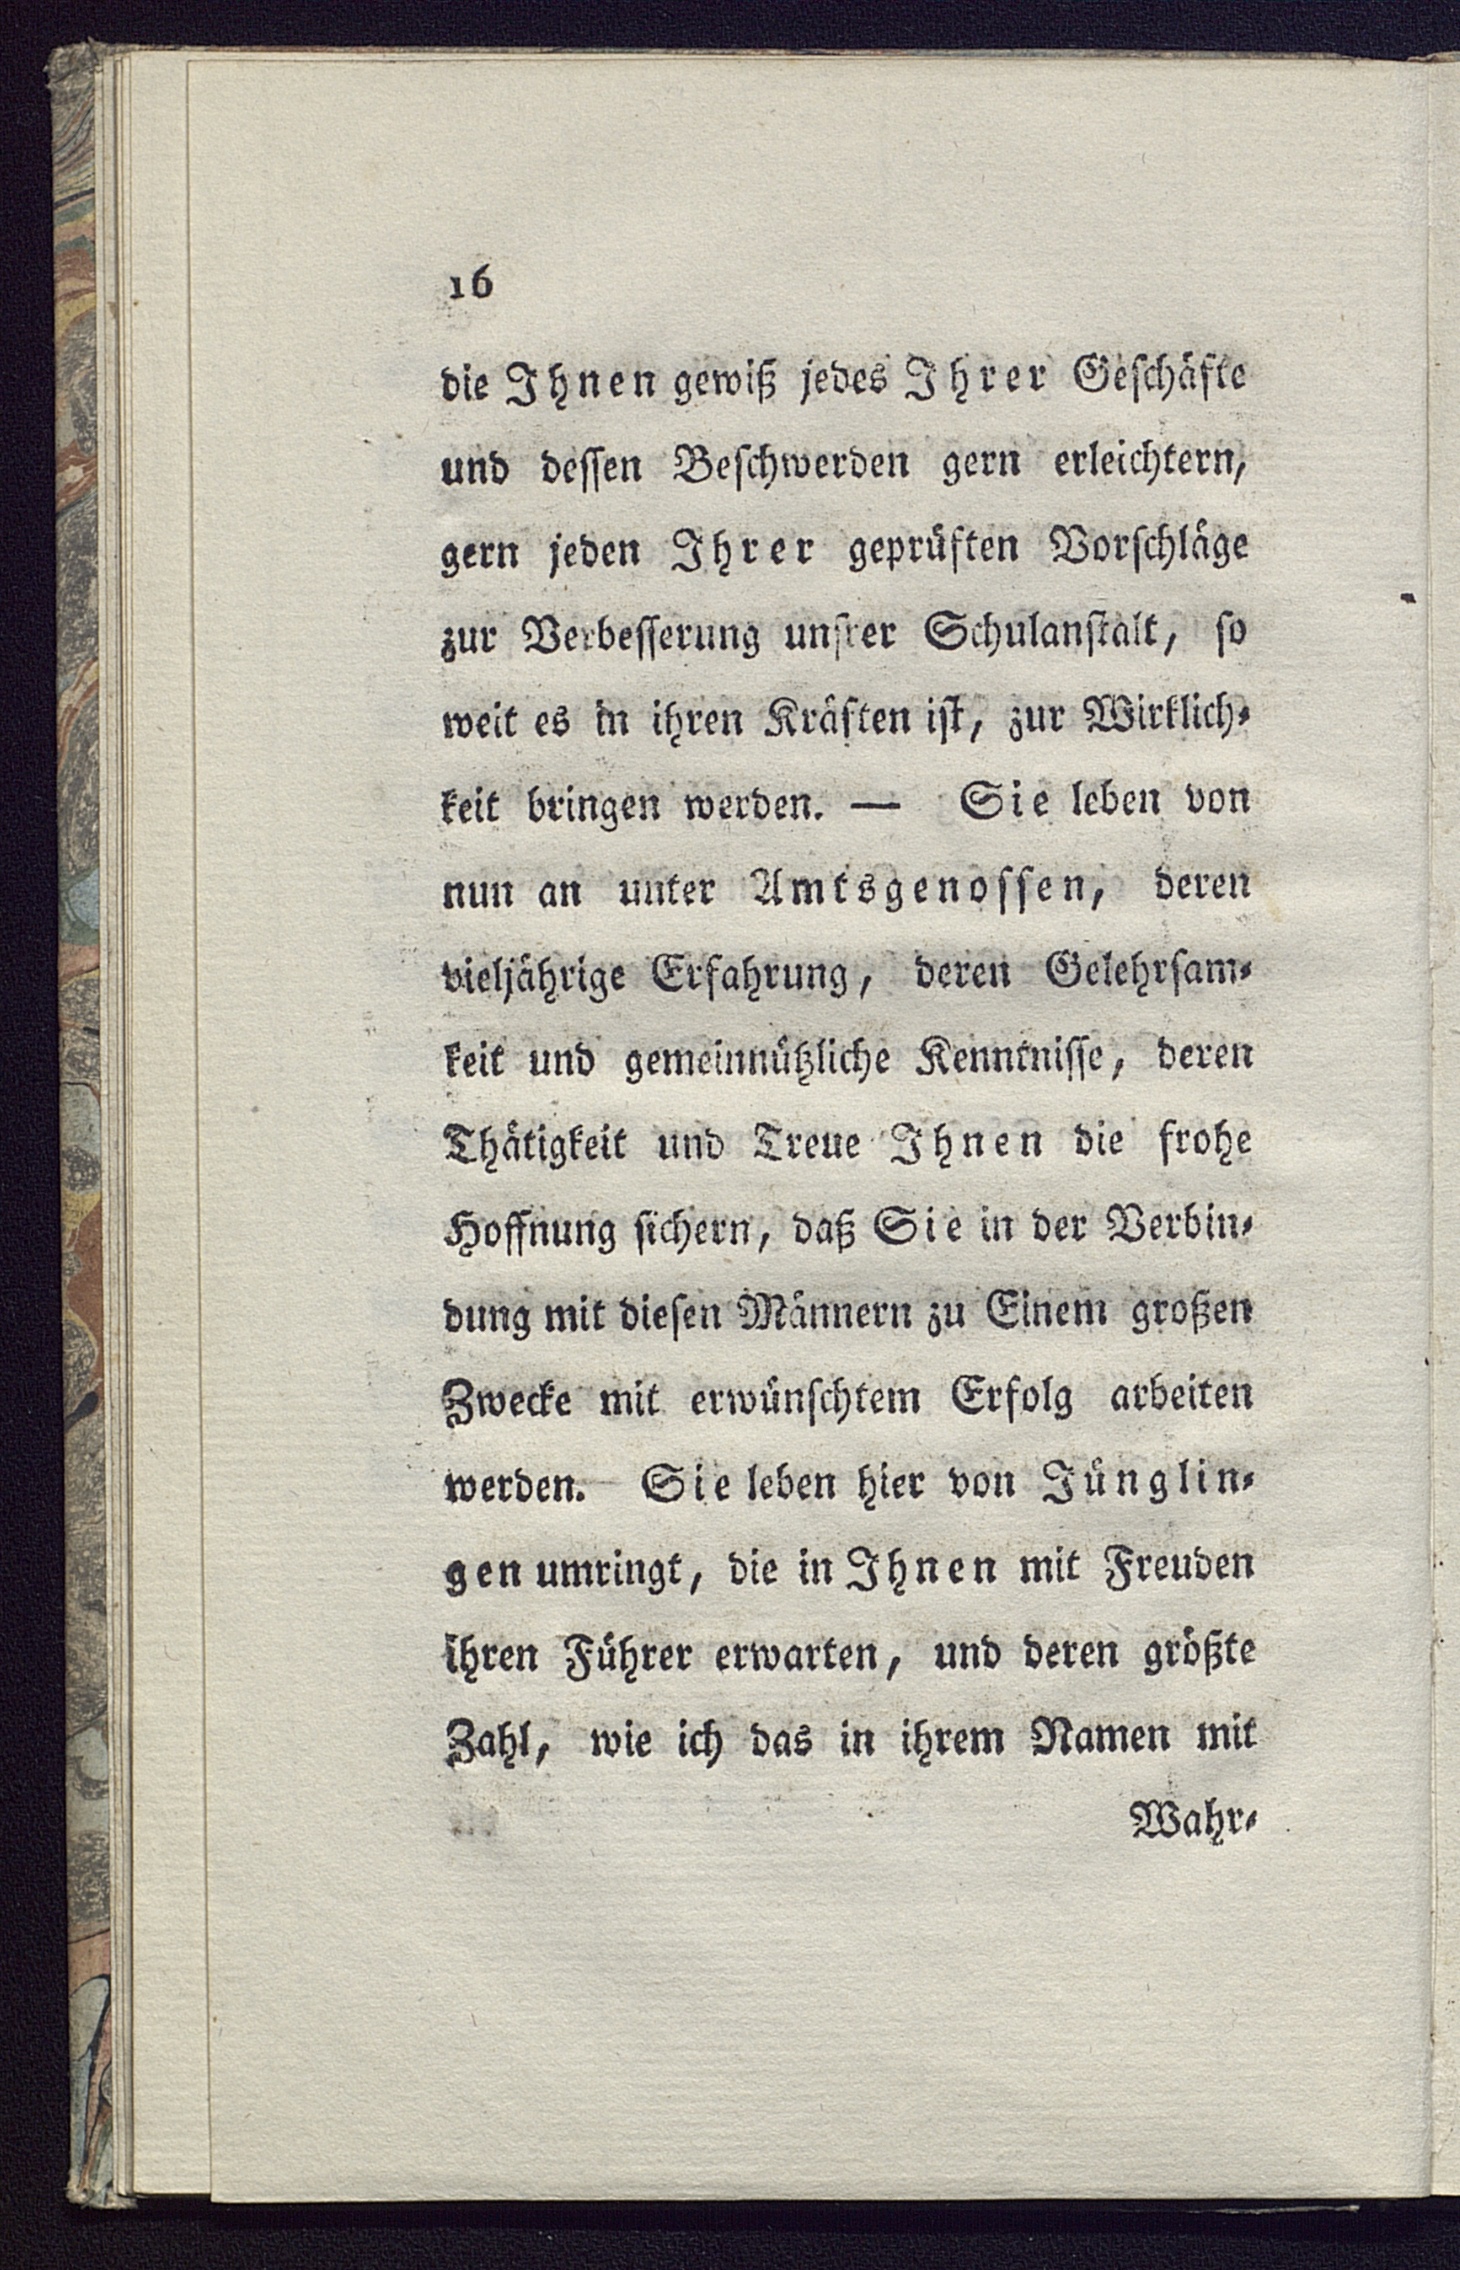 16
die Ihnen gewiß jedes Ihrer Geschäfte
und dessen Beschwerden gern erleichtern,
gern jeden Ihrer geprüften Vorschläge
zur Verbesserung unsrer Schulanstalt, so
weit es in ihren Kräften ist, zur Wirklich-
keit bringen werden. — Sie leben von
nun an unter Amtsgenossen, deren
vieljährige Erfahrung, deren Gelehrsam-
keit und gemeinnützliche Kenntnisse, deren
Thätigkeit und Treue Ihnen die frohe
Hoffnung sichern, daß Sie in der Verbin-
dung mit diesen Männern zu Einem großen
Zwecke mit erwünschtem Erfolg arbeiten
werden. Sie leben hier von Jünglin-
gen umringt, die in Ihnen mit Freuden
ihren Führer erwarten, und deren größte
Zahl, wie ich das in ihrem Namen mit
Wahr-